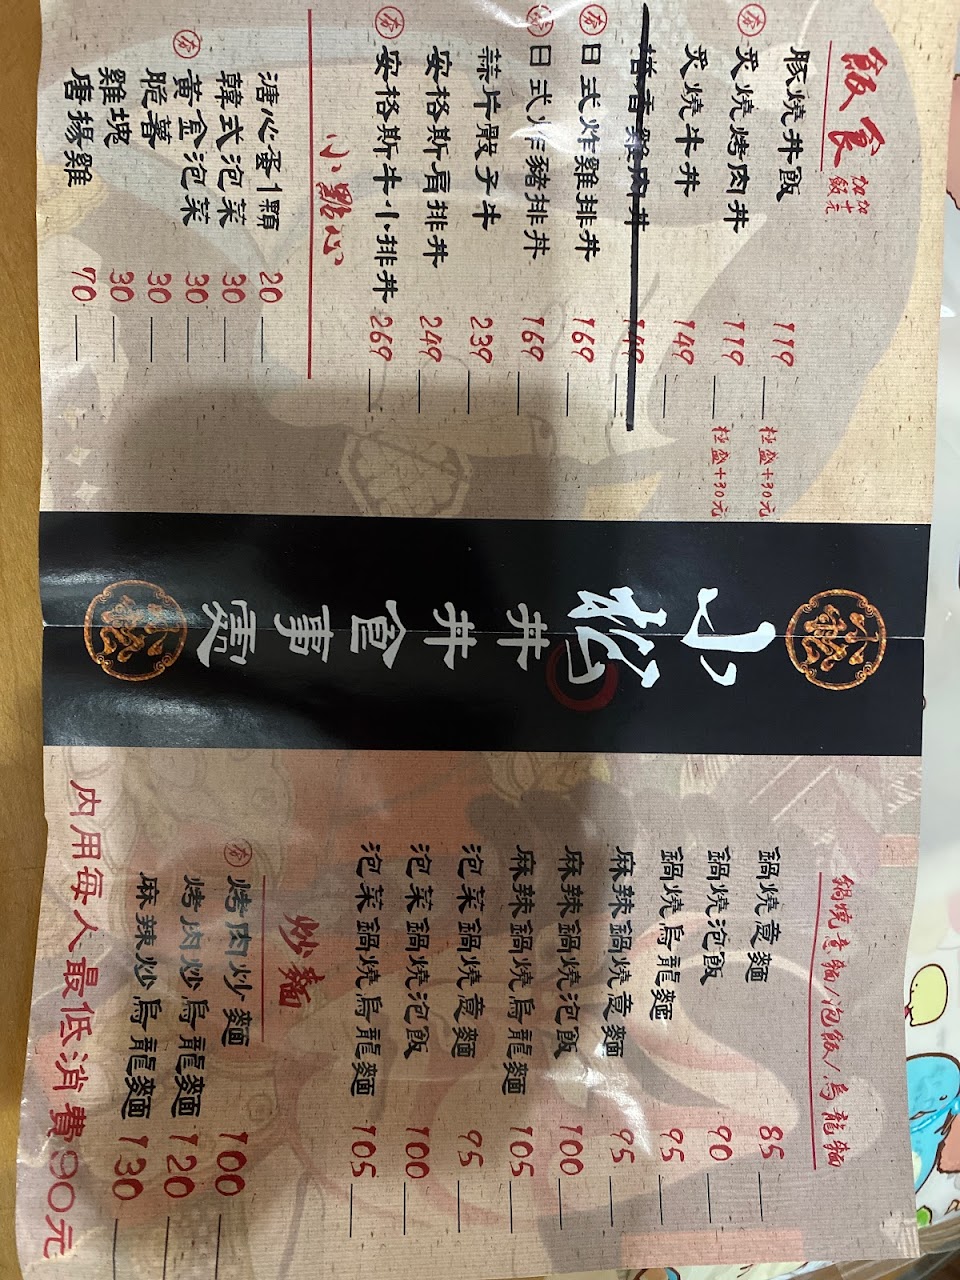 飯食 加飯加十元
豚燒丼飯 119 極盛+30元
夯 炙燒烤肉丼 119 極盛+30元
炙燒牛丼 149
雞肉丼 149
夯 日式炸雞排丼 169
夯 日式炸豬排丼 169
蒜片骰子牛 239
安格斯肩排丼 249
夯 安格斯牛小排丼 269
小點心
溏心蛋1顆 20
韓式泡菜 30
夯 黃金泡菜 30
脆薯 30
雞塊 30
唐揚雞 70
小松丼
丼食事處
鍋燒意麵/泡飯/烏龍麵
鍋燒意麵 85
鍋燒泡飯 90
鍋燒烏龍麵 95
麻辣鍋燒意麵 95
麻辣鍋燒泡飯 100
麻辣鍋燒烏龍麵 105
泡菜鍋燒意麵 95
泡菜鍋燒泡飯 100
泡菜鍋燒烏龍麵 105
炒麵
夯 烤肉炒麵 100
烤肉炒烏龍麵 120
麻辣炒烏龍麵 130
內用每人最低消費90元